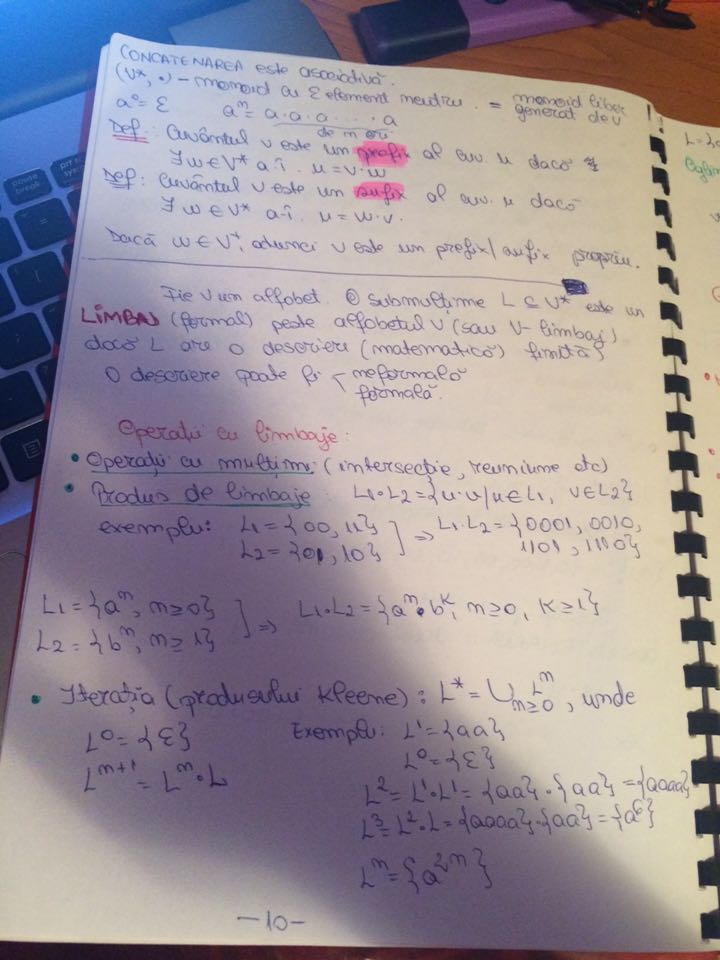 CONCATENAREA este asociativă.
(V*, •) - monoid cu ε element neutru. = monoid liber generat de V
a⁰ = ε aⁿ = a·a·a· . . . ·a
de n ori
Def: Cuvântul v este un prefix al cuv. u dacă
∃ w ∈ V* a.î. u = v·w
Def: Cuvântul v este un sufix al cuv. u dacă
∃ w ∈ V* a.î. u = w·v.
Dacă w ∈ V⁺, atunci v este un prefix/sufix propriu.
Fie V un alfabet. O submulțime L ⊆ V* este un
LIMBAJ (formal) peste alfabetul V (sau V-limbaj)
dacă L are o descriere (matematică) finită
O descriere poate fi < neformală
formală.
Operații cu limbaje:
• Operații cu mulțimi (intersecție, reuniune etc)
• Produs de limbaje: L₁·L₂ = {u·v/u∈L₁, v∈L₂}
exemplu: L₁ = {00, 11} ] ⇒ L₁·L₂ = {0001, 0010,
L₂ = {01, 10} 1101, 1110}
L₁ = {aⁿ, n≥0} ] ⇒ L₁·L₂ = {aⁿ•bᵏ, n≥0, k≥1}
L₂ = {bⁿ, n≥1}
• Iterația (produsului Kleene): L* = ∪n≥0 Lⁿ, unde
L⁰ = {ε} Exemplu: L¹ = {aa}
Lⁿ⁺¹ = Lⁿ·L L⁰ = {ε}
L² = L¹·L¹ = {aa}·{aa} = {aaaa}
L³ = L²·L = {aaaa}·{aa} = {a⁶}
Lⁿ = {a²ⁿ}
-10-
L=